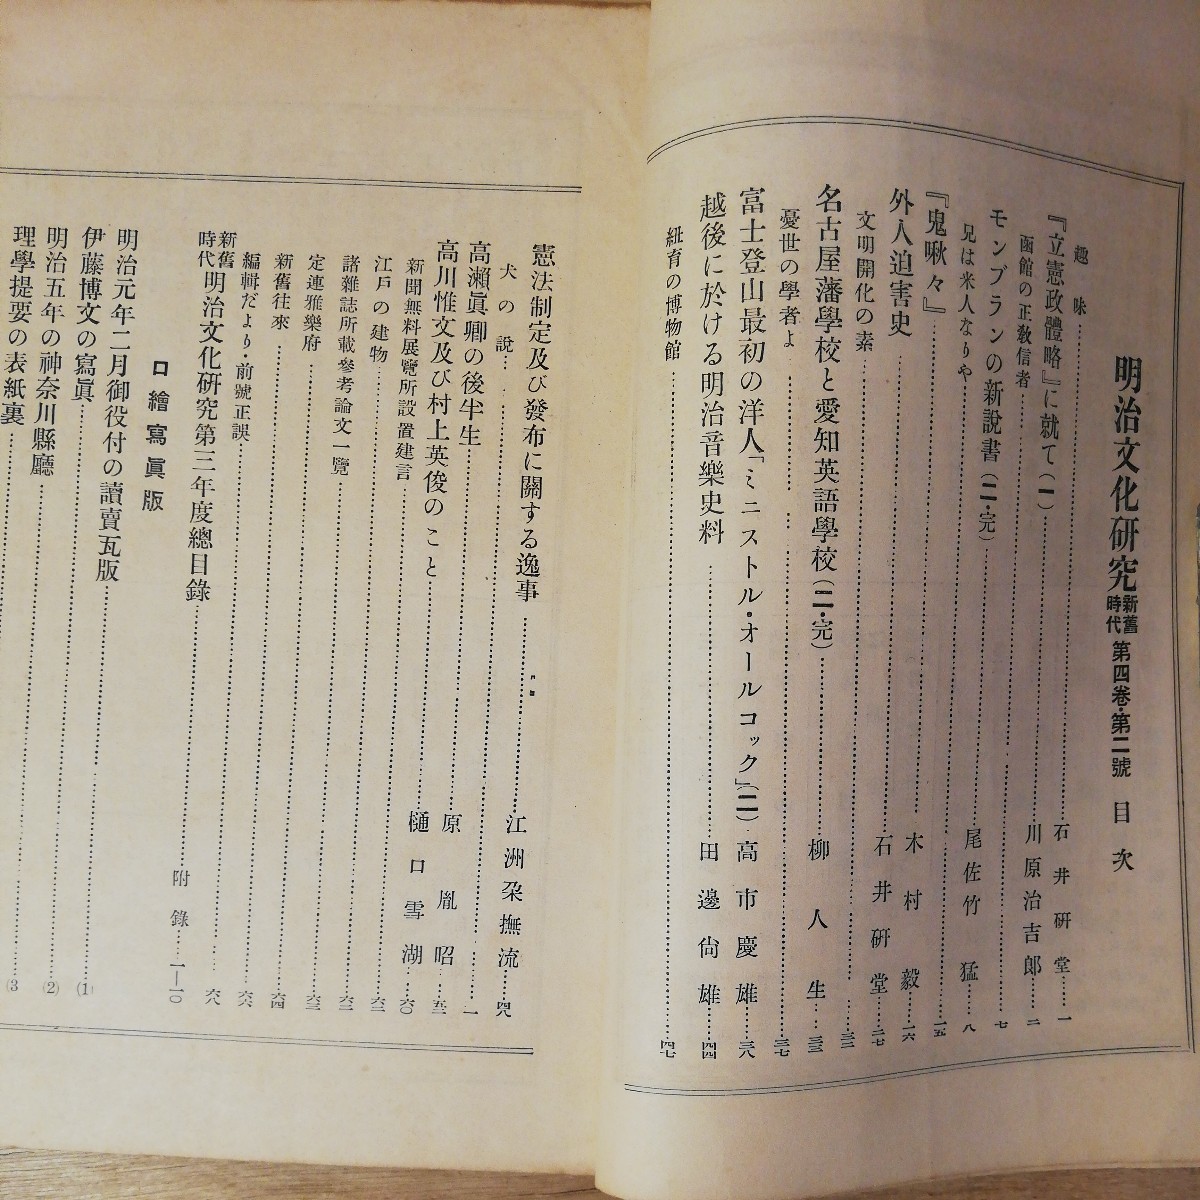 明治文化研究 新舊時代 第四卷・第二號 目次
趣味……石井研堂……一
『立憲政體略』に就て(一)……川原治吉郎……二
函館の正敎信者……七
モンブランの新說書(二・完)……尾佐竹猛……八
兄は米人なりや……一五
『鬼啾々』……木村毅……一六
外人迫害史……石井硏堂……二七
文明開化の素……三二
名古屋藩學校と愛知英語學校(二・完)……柳人生……三三
憂世の學者よ……三七
富士登山最初の洋人「ミニストル・オールコック」(二)高市慶雄……三八
越後に於ける明治音樂史料……田邊尙雄……四四
紐育の博物館……四七
憲法制定及び發布に關する逸事……江洲朶撫流……四八
犬の說……一
高瀨眞卿の後半生……原胤昭……五三
高川惟文及び村上英俊のこと……樋口雪湖……六〇
新聞無料展覽所設置建言
江戶の建物……六二
諸雜誌所載參考論文一覽……六二
定連雅樂府……六三
新舊往來……六四
編輯だより・前號正誤……六六
新舊時代 明治文化硏究第三年度總目錄……六八
附錄…一—一〇
口繪寫眞版
明治元年二月御役付の讀賣瓦版……(1)
伊藤博文の寫眞……(2)
明治五年の神奈川縣廳……(3
理學提要の表紙裏……